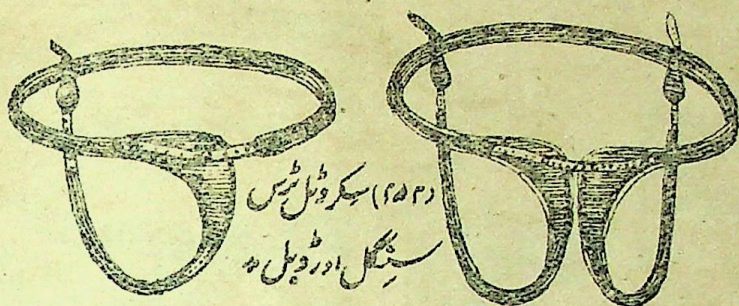 (۲۵۳) سکروٹل ٹرس
سینگل اور ڈبل *